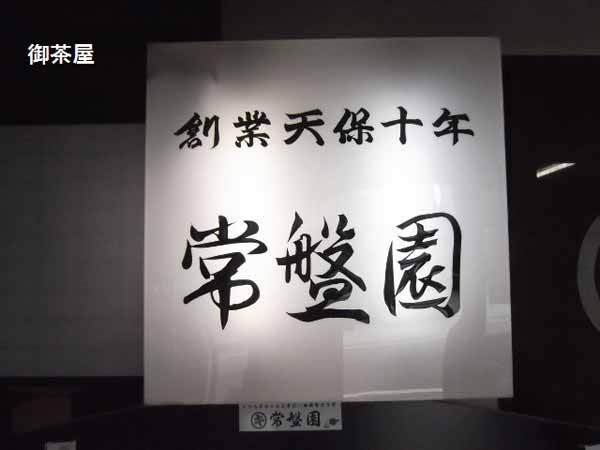 御茶屋
創業天保十年
常盤園
常盤園